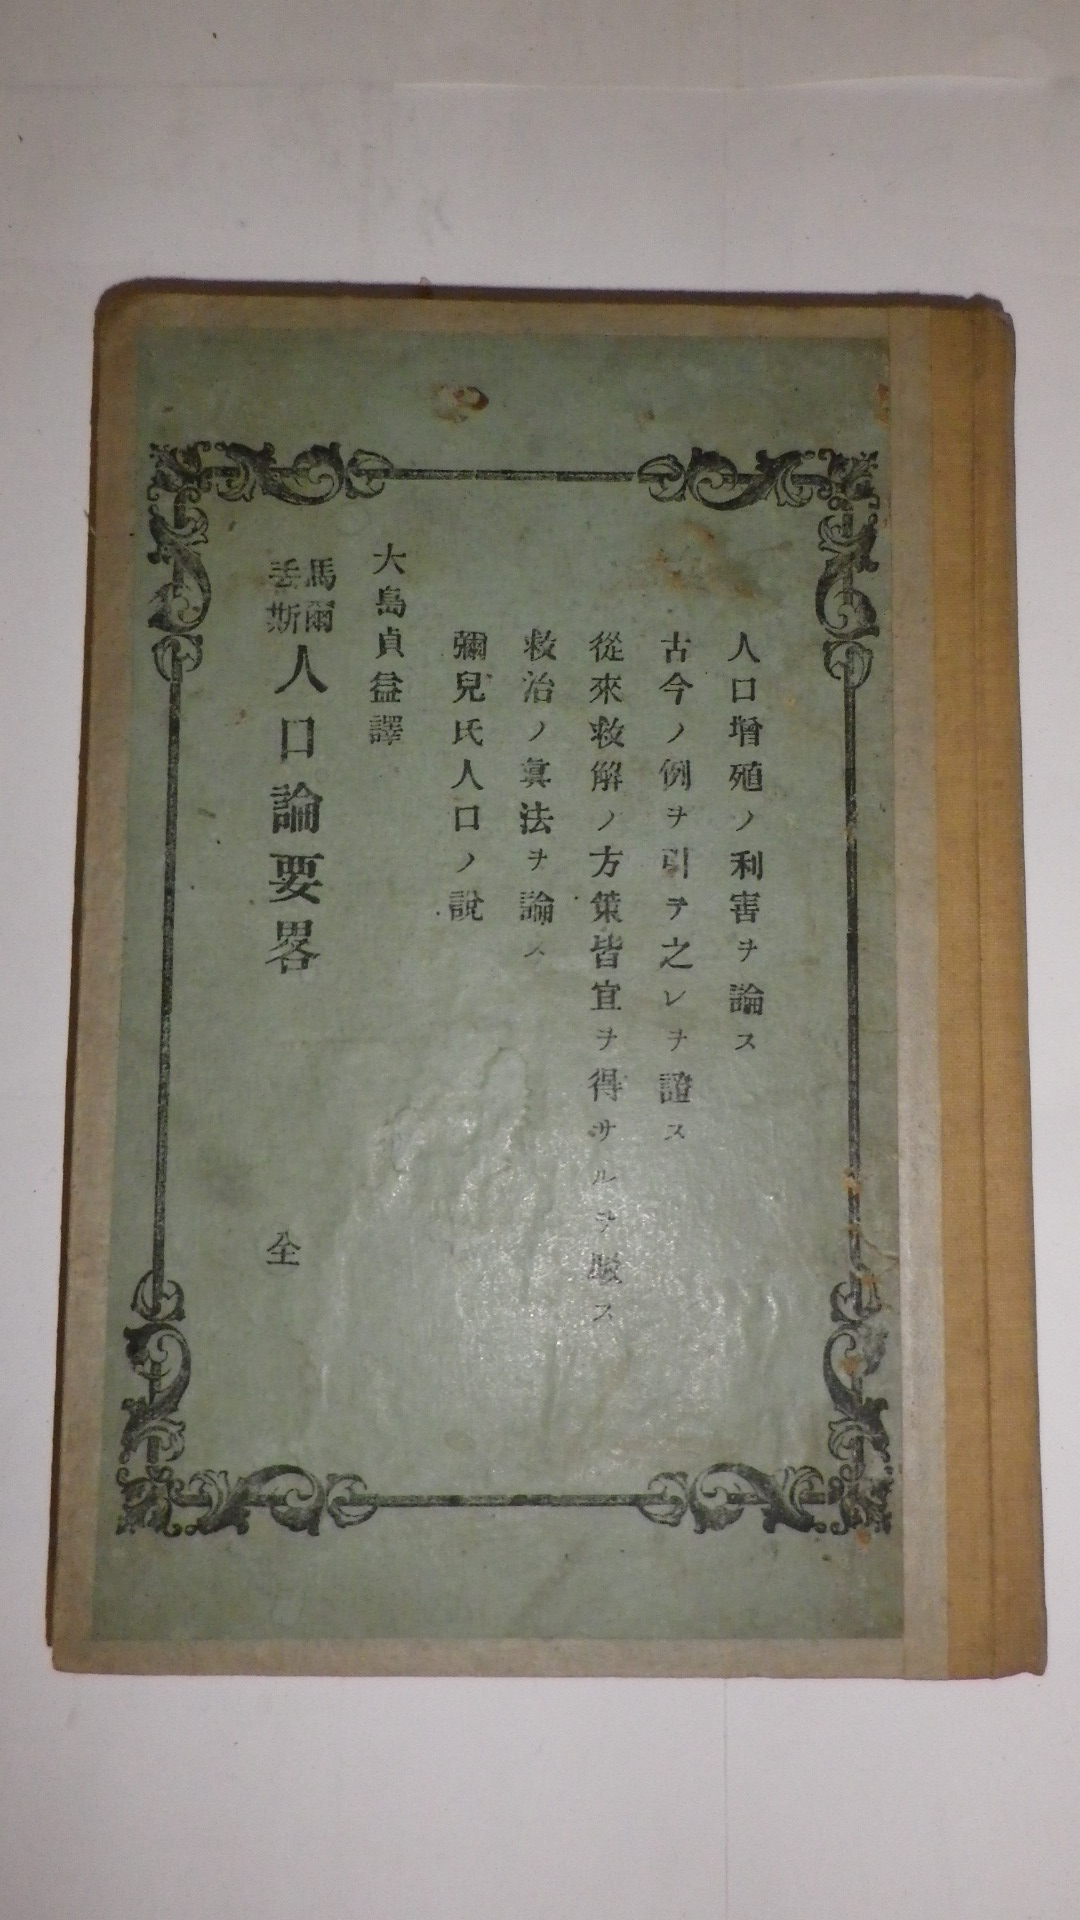 人口増殖ノ利害ヲ論ス
古今ノ例ヲ引テ之レヲ證ス
從來救解ノ方策皆宜ヲ得サルヲ駁ス
救治ノ眞法ヲ論ス
彌兒氏人口ノ說
大島貞益譯
馬爾丢斯人口論要畧
全